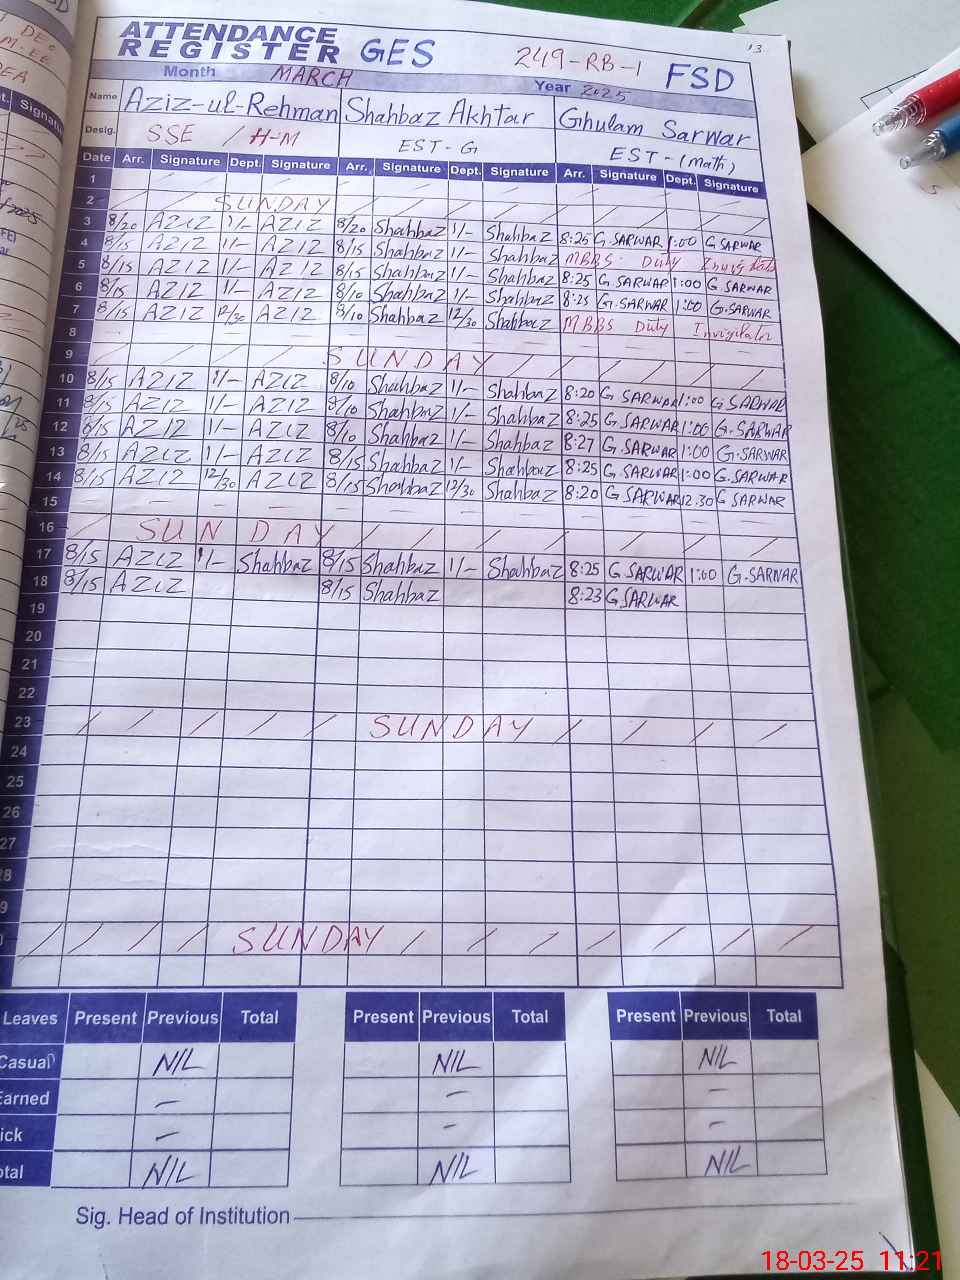 ATTENDANCE
REGISTER GES 249-RB-1 FSD
13
Month MARCH Year 2025
Name Aziz-ul-Rehman Shahbaz Akhtar Ghulam Sarwar
Desig. SSE / H-M EST-G EST-(math)
Date Arr. Signature Dept. Signature Arr. Signature Dept. Signature Arr. Signature Dept. Signature
1
2 SUNDAY
3 8/20 AZIZ 1/- AZIZ 8/20 Shahbaz 1/- Shahbaz 8:25 G.SARWAR 1:00 G SARWAR
4 8/15 AZIZ 1/- AZIZ 8/15 Shahbaz 1/- Shahbaz MBBS Duty
5 8/15 AZIZ 1/- AZIZ 8/15 Shahbaz 1/- Shahbaz 8:25 G.SARWAR 1:00 G SARWAR
6 8/15 AZIZ 1/- AZIZ 8/10 Shahbaz 1/- Shahbaz 8:25 G.SARWAR 1:00 G.SARWAR
7 8/15 AZIZ 12/30 AZIZ 8/10 Shahbaz 12/30 Shahbaz MBBS Duty Invigilator
8 — — — — — — — — — — — —
9 SUNDAY
10 8/15 AZIZ 1/- AZIZ 8/10 Shahbaz 1/- Shahbaz 8:20 G SARWAR 1:00 G SARWAR
11 8/15 AZIZ 1/- AZIZ 8/10 Shahbaz 1/- Shahbaz 8:25 G SARWAR 1:00 G.SARWAR
12 8/15 AZIZ 1/- AZIZ 8/10 Shahbaz 1/- Shahbaz 8:27 G SARWAR 1:00 G.SARWAR
13 8/15 AZIZ 1/- AZIZ 8/15 Shahbaz 1/- Shahbaz 8:25 G SARWAR 1:00 G.SARWAR
14 8/15 AZIZ 12/30 AZIZ 8/15 Shahbaz 12/30 Shahbaz 8:20 G SARWAR 12:30 G SARWAR
15 — — — — — — — — — — — —
16 SUNDAY
17 8/15 AZIZ 1/- Shahbaz 8/15 Shahbaz 1/- Shahbaz 8:25 G SARWAR 1:00 G.SARWAR
18 8/15 AZIZ 8/15 Shahbaz 8:23 G SARWAR
19
20
21
22
23 SUNDAY
24
25
26
27
28
9
SUNDAY
Leaves Present Previous Total Present Previous Total Present Previous Total
Casual NIL NIL NIL
Earned — — —
ick — — —
otal NIL NIL NIL
Sig. Head of Institution
18-03-25 11:21